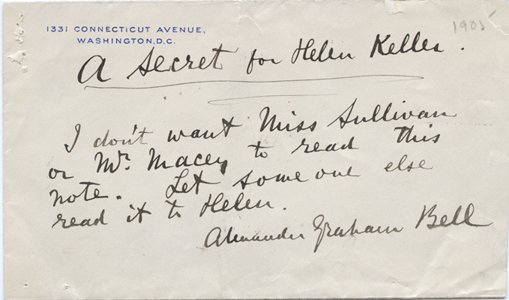 1331 CONNECTICUT AVENUE,
WASHINGTON, D.C.
1905
A Secret for Helen Keller.
I don't want Miss Sullivan
or Mr. Macey to read this
note. Let some one else
read it to Helen.
Alexander Graham Bell